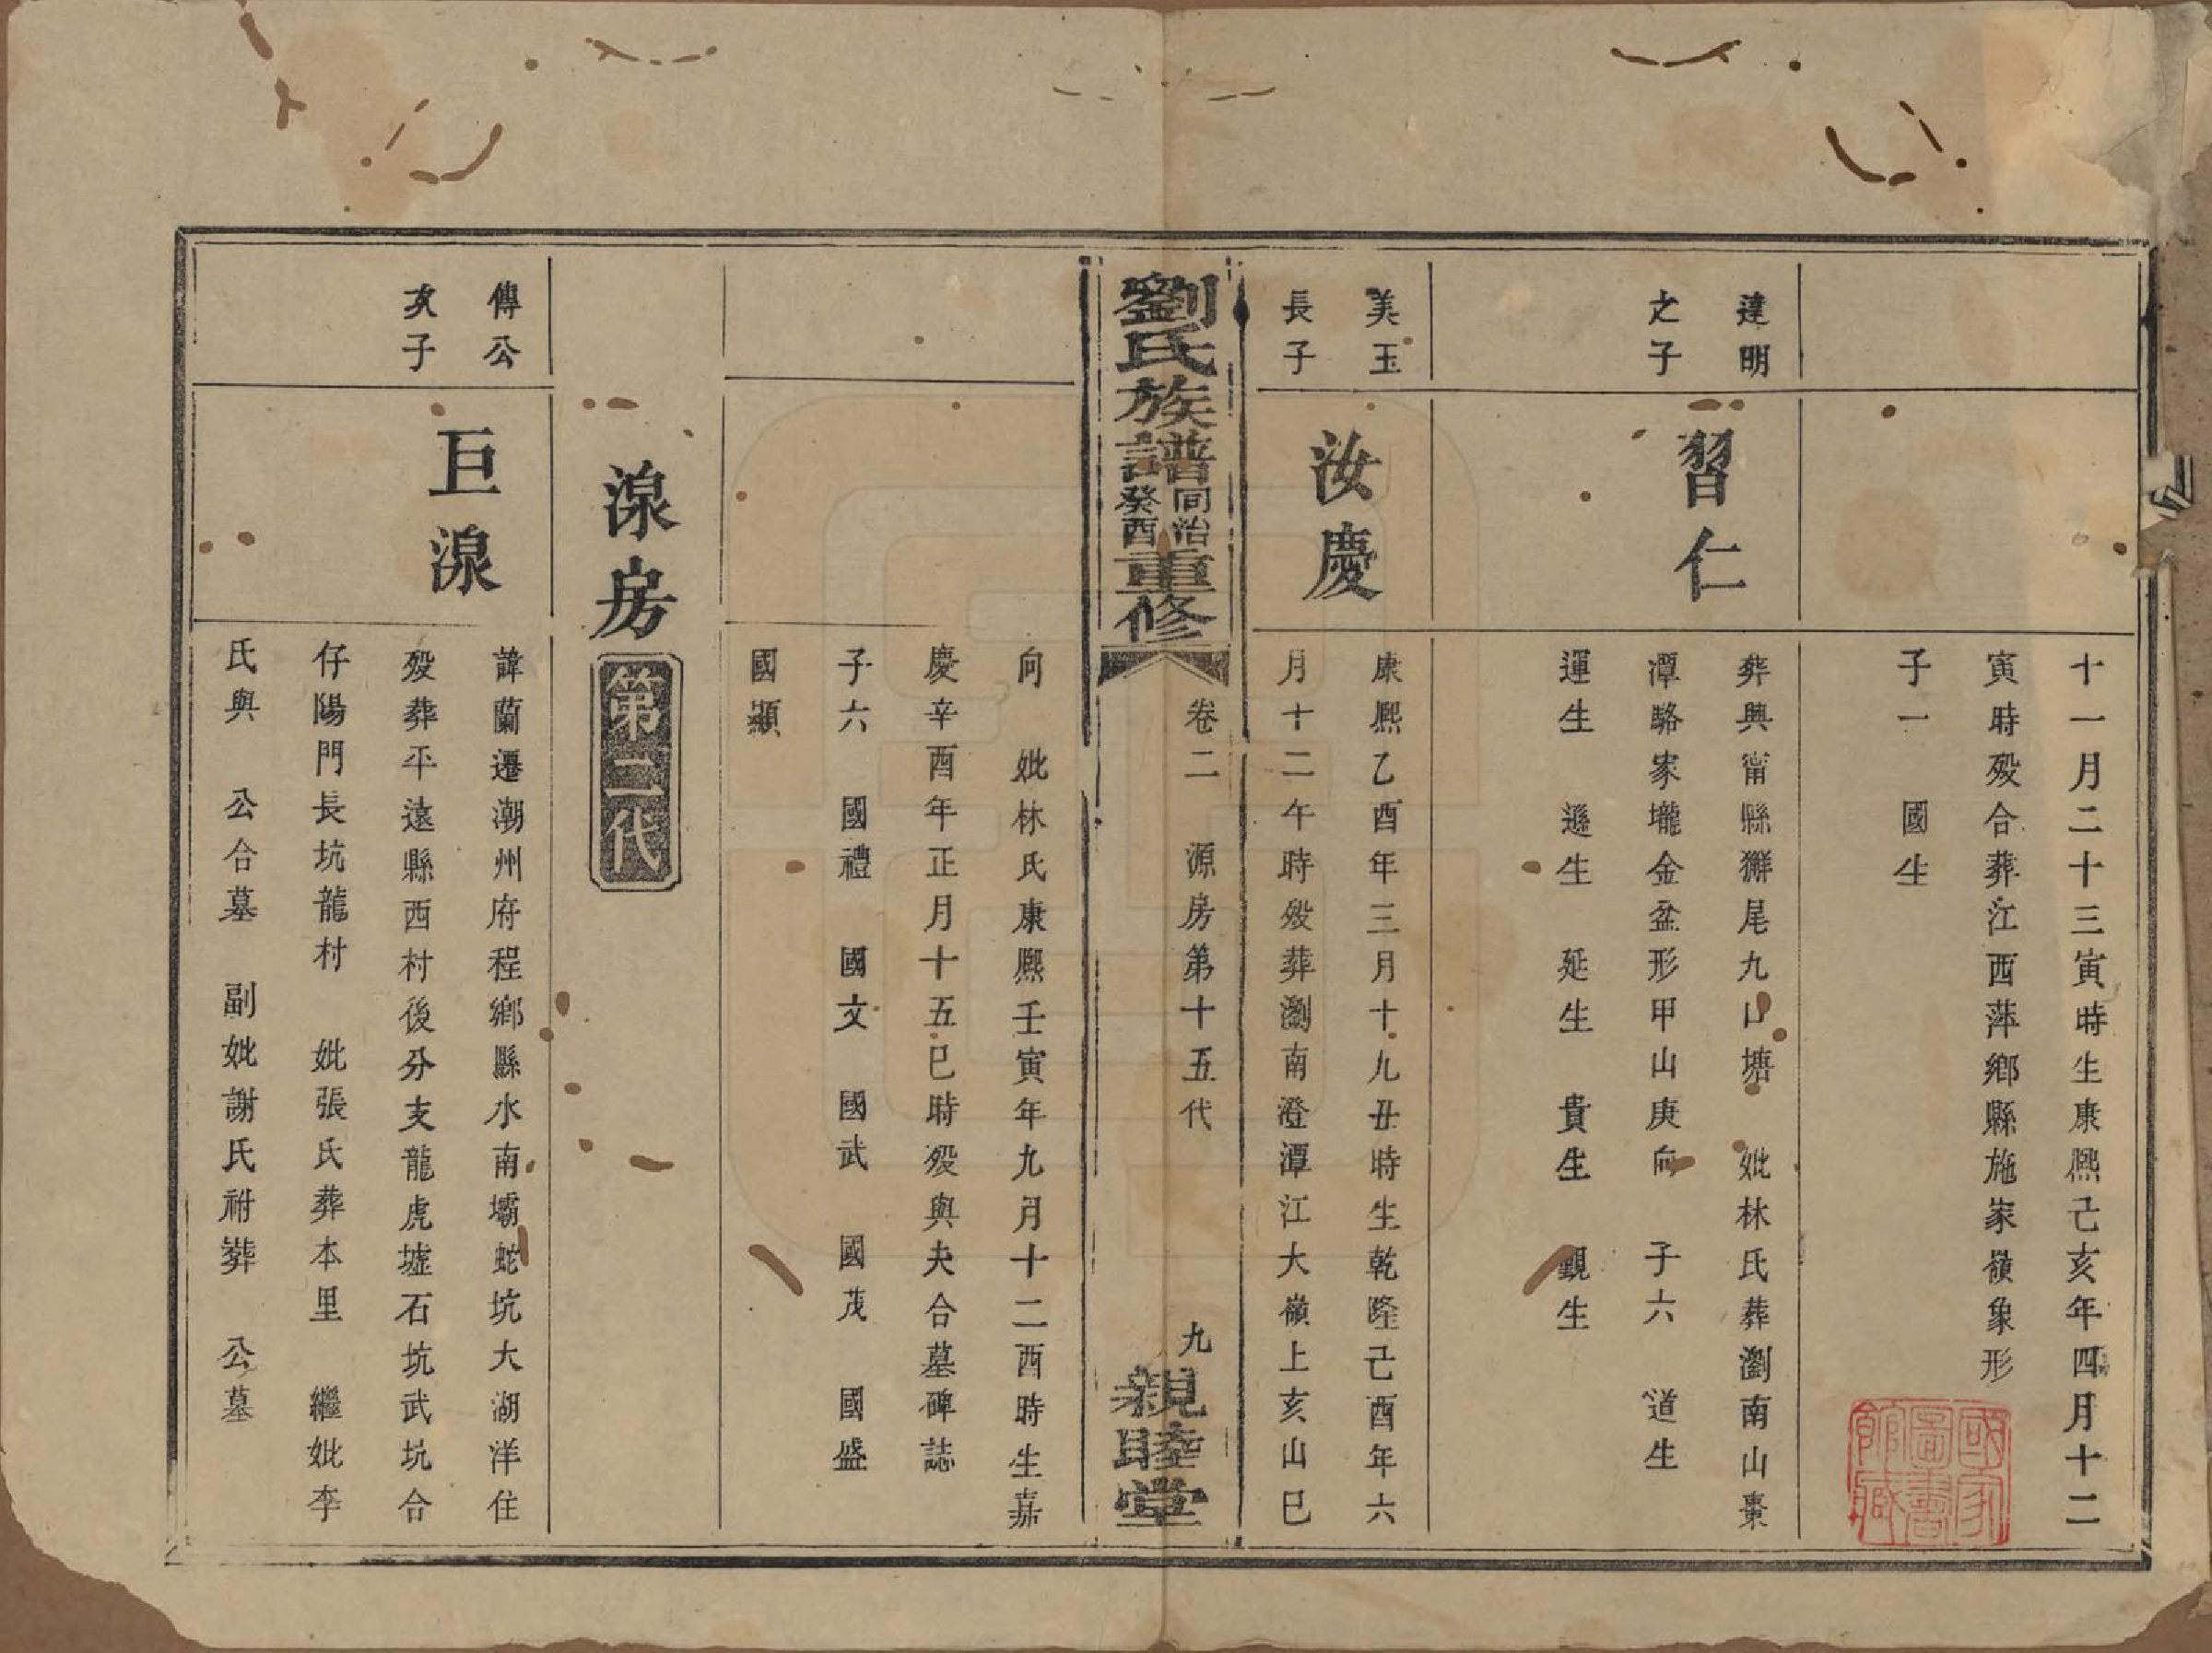 十一月二十三寅時生康熙己亥年四月十二
寅時歿合葬江西萍鄉縣施家嶺象形
子一　國生
達明
之子
習仁
葬興甯縣獬尾九山塘　妣林氏葬瀏南山棗
潭駱家壠金盆形甲山庚向　子六　道生
運生　遜生　延生　貴生　覲生
美玉
長子
汝慶
康熙乙酉年三月十九丑時生乾隆己酉年六
月十二午時歿葬瀏南澄潭江大嶺上亥山巳
劉氏族譜同治癸酉重修
卷二　源房第十五代　九
親睦堂
向　妣林氏康熙壬寅年九月十二酉時生嘉
慶辛酉年正月十五巳時歿與夫合墓碑誌
子六　國禮　國文　國武　國茂　國盛
國顯
湶房第二代
傳公
次子
巨湶
諱蘭遷潮州府程鄉縣水南壩蛇坑大湖洋住
歿葬平遠縣西村後分支龍虎墟石坑武坑合
仔陽門長坑龍村　妣張氏葬本里　繼妣李
氏與　公合墓　副妣謝氏祔葬　公墓
國家圖書館藏